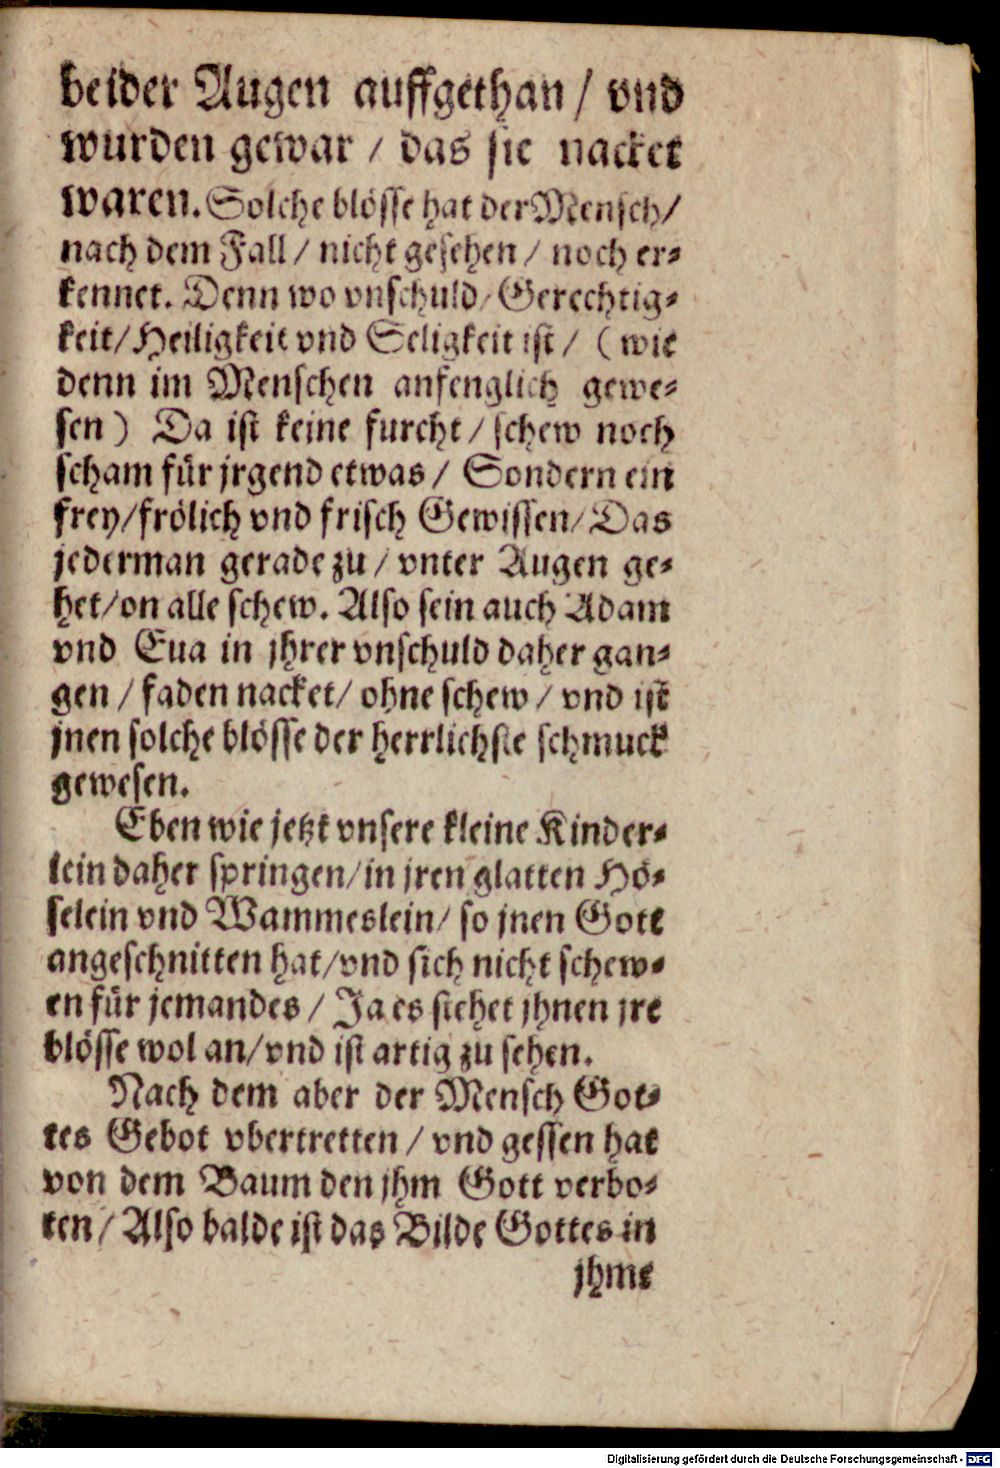 beider Augen auffgethan / vnd
wurden gewar / das sie nacket
waren. Solche blösse hat der Mensch /
nach dem Fall / nicht gesehen / noch er-
kennet. Denn wo vnschuld / Gerechtig-
keit / Heiligkeit vnd Seligkeit ist / ( wie
denn im Menschen anfenglich gewe-
sen ) Da ist keine furcht / schew noch
scham für jrgend etwas / Sondern ein
frey / frölich vnd frisch Gewissen / Das
jederman gerade zu / vnter Augen ge-
het / on alle schew. Also sein auch Adam
vnd Eua in jhrer vnschuld daher gan-
gen / faden nacket / ohne schew / vnd ist
jnen solche blösse der herrlichste schmuck
gewesen.
Eben wie jetzt vnsere kleine Kinder-
lein daher springen / in jren glatten Hö-
selein vnd Wammeslein / so jnen Gott
angeschnitten hat / vnd sich nicht schew-
en für jemandes / Ja es stehet jhnen jre
blösse wol an / vnd ist artig zu sehen.
Nach dem aber der Mensch Got-
tes Gebot vbertretten / vnd gessen hat
von dem Baum den jhm Gott verbo-
ten / Also balde ist das Bilde Gottes in
jhme
Digitalisierung gefördert durch die Deutsche Forschungsgemeinschaft - DFG